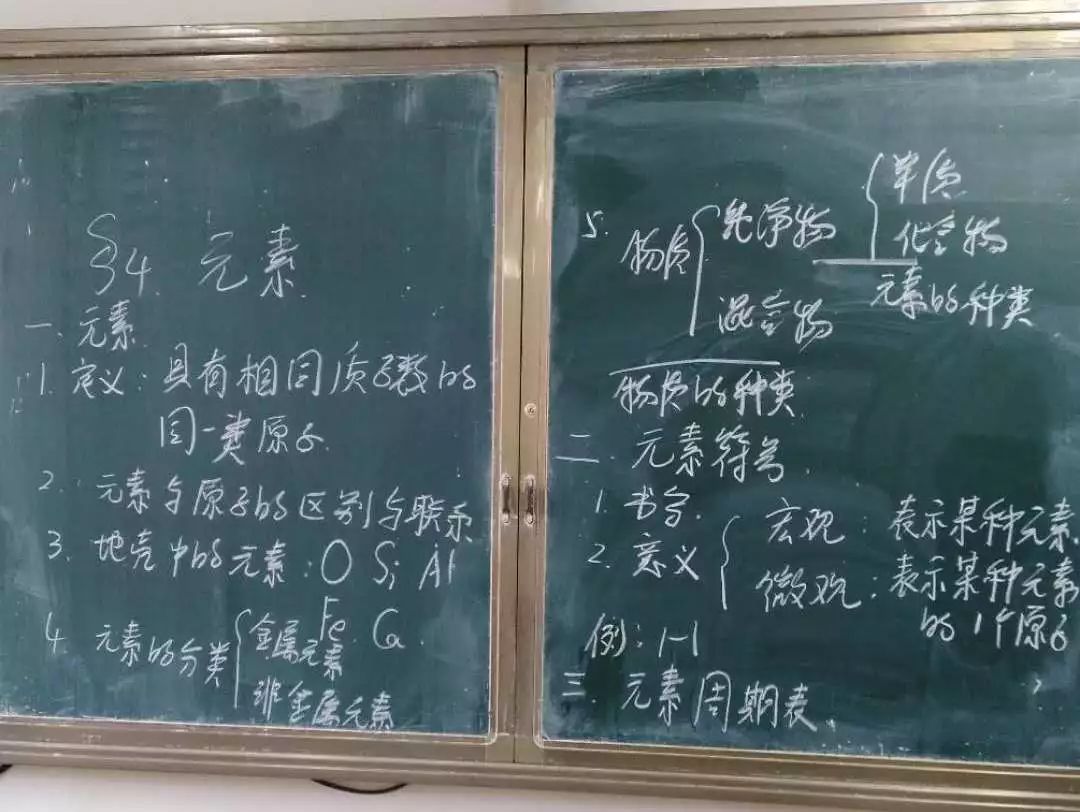 §4 元素
一、元素
1. 定义：具有相同质子数的
同一类原子
2. 元素与原子的区别与联系
3. 地壳中的元素：O Si Al
Fe Ca
4. 元素的分类 { 金属元素
非金属元素
5. 物质 { 纯净物 { 单质
化合物
元素的种类
混合物
物质的种类
二 元素符号
1. 书写
2. 意义 { 宏观：表示某种元素
微观：表示某种元素
的1个原子
例：H
三 元素周期表